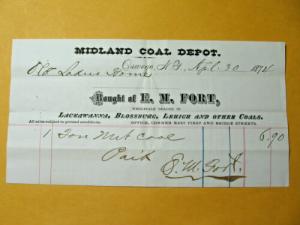 MIDLAND COAL DEPOT.
Oswego, N.Y. Sept. 30 1874
Old Ladies Home
Bought of E. M. FORT,
WHOLESALE DEALER IN
LACKAWANNA, BLOSSBURG, LEHIGH AND OTHER COALS.
OFFICE, CORNER EAST FIRST AND BRIDGE STREETS.
1 Ton Nut Coal 6.90
Paid
E. M. Fort